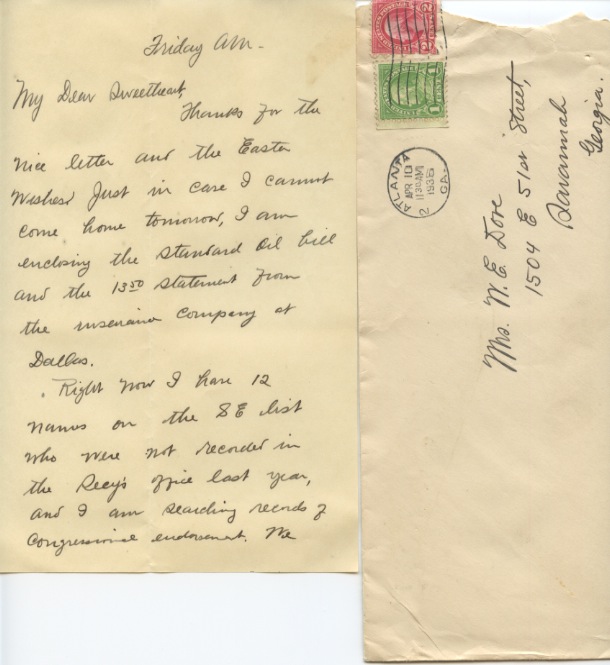 Friday AM.
My Dear Sweetheart,
Thanks for the
nice letter and the Easter
Wishes! Just in case I cannot
come home tomorrow, I am
enclosing the Standard Oil bill
and the 13.50 statement from
the insurance company at
Dallas.
Right now I have 12
names on the SE list
who were not recorded in
the Secy's office last year,
and I am searching records of
Congressional endorsement. We
ATLANTA
GA.
APR 10
11 30 AM
1936
2
2
1
Mrs. W. E. Dove
1504 E 51st Street,
Savannah
Georgia.